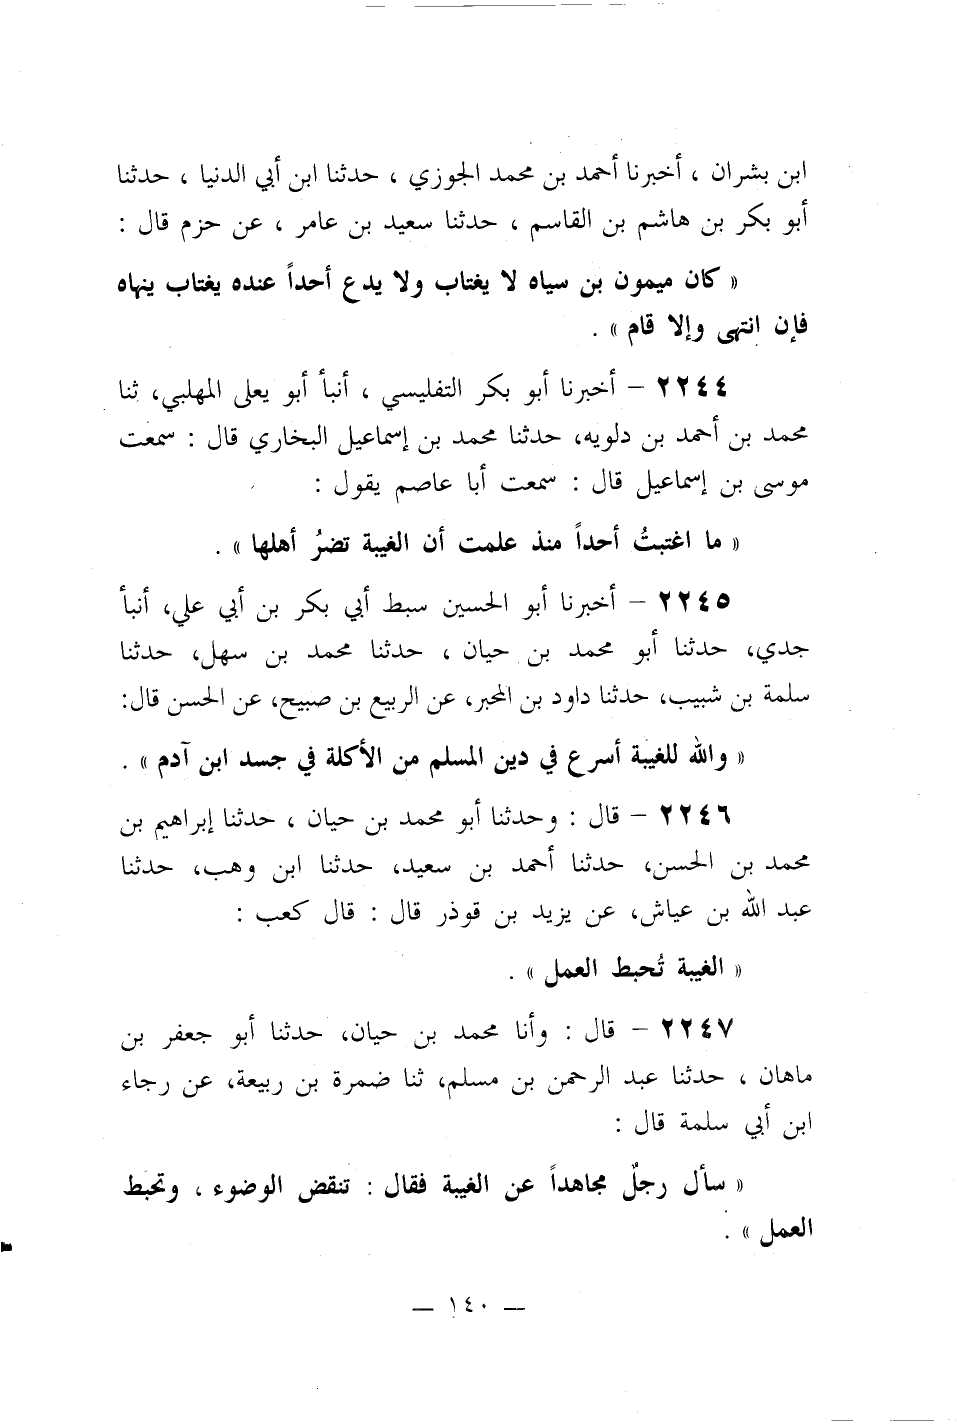 ابن بشران ، أخبرنا أحمد بن محمد الجوزي ، حدثنا ابن أبي الدنيا ، حدثنا
أبو بكر بن هاشم بن القاسم ، حدثنا سعيد بن عامر ، عن حزم قال :
« كان ميمون بن سياه لا يغتاب ولا يدع أحداً عنده يغتاب ينهاه
فإن انتهى وإلا قام » .
٢٢٤٤ – أخبرنا أبو بكر التفليسي ، أنبأ أبو يعلى المهلبي، ثنا
محمد بن أحمد بن دلويه، حدثنا محمد بن إسماعيل البخاري قال : سمعت
موسى بن إسماعيل قال : سمعت أبا عاصم يقول :
« ما اغتبتُ أحداً منذ علمت أن الغيبة تضرُ أهلها » .
٢٢٤٥ – أخبرنا أبو الحسين سبط أبي بكر بن أبي علي، أنبأ
جدي، حدثنا أبو محمد بن حيان ، حدثنا محمد بن سهل، حدثنا
سلمة بن شبيب، حدثنا داود بن المحبر، عن الربيع بن صبيح، عن الحسن قال:
« والله للغيبة أسرع في دين المسلم من الأكلة في جسد ابن آدم » .
٢٢٤٦ – قال : وحدثنا أبو محمد بن حيان ، حدثنا إبراهيم بن
محمد بن الحسن، حدثنا أحمد بن سعيد، حدثنا ابن وهب، حدثنا
عبد الله بن عياش، عن يزيد بن قوذر قال : قال كعب :
« الغيبة تُحبط العمل » .
٢٢٤٧ – قال : وأنا محمد بن حيان، حدثنا أبو جعفر بن
ماهان ، حدثنا عبد الرحمن بن مسلم، ثنا ضمرة بن ربيعة، عن رجاء
ابن أبي سلمة قال :
« سأل رجلٌ مجاهداً عن الغيبة فقال : تنقض الوضوء ، وتحبط
العمل » .
— ١٤٠ —